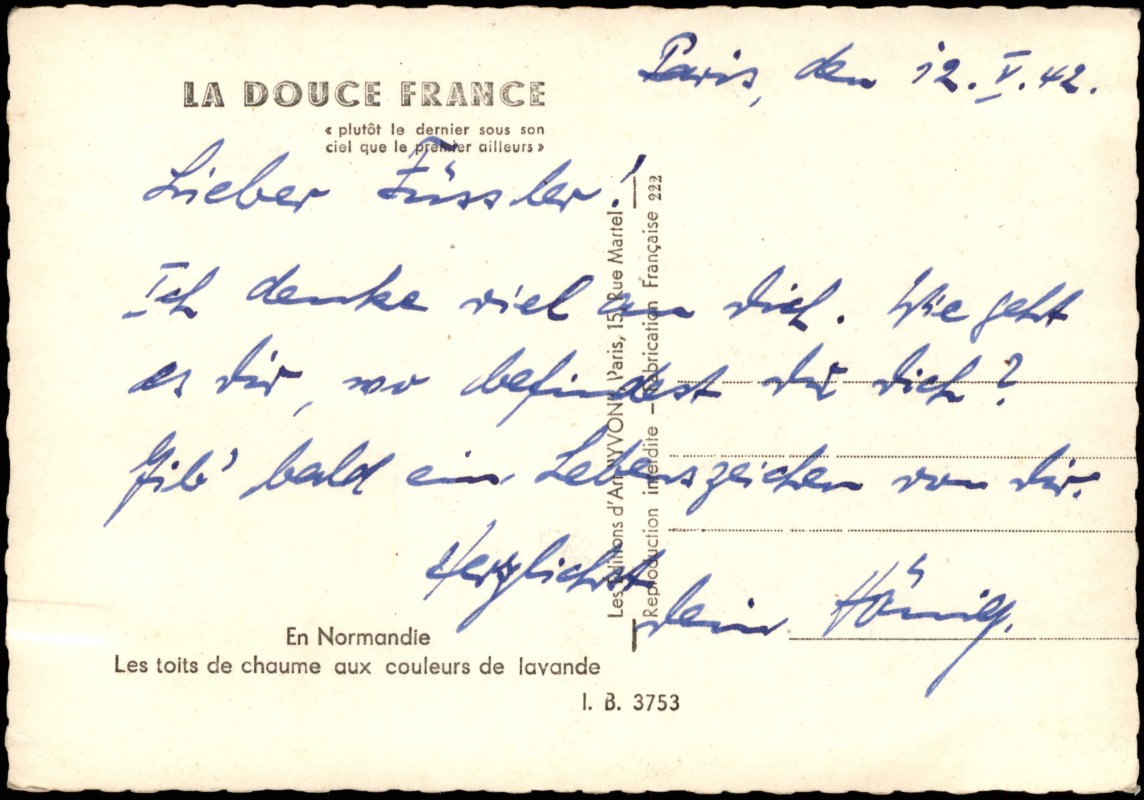 Paris, den 12. V. 42.
LA DOUCE FRANCE
« plutôt le dernier sous son
ciel que le premier ailleurs »
Lieber Füssler!
Ich denke viel an dich. Wie geht
es dir, wo befindest du dich?
Gib' bald ein Lebenszeichen von dir.
Herzlichst
dein Hönig.
En Normandie
Les toits de chaume aux couleurs de lavande
I. B. 3753
Les Éditions d'Art Paris, 15, Rue Martel
Reproduction interdite — Fabrication Française 222